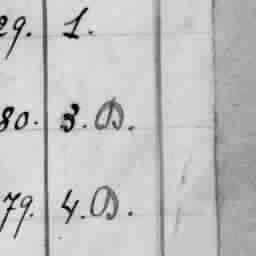 29. 1.
80. 3. D.
79. 4. D.